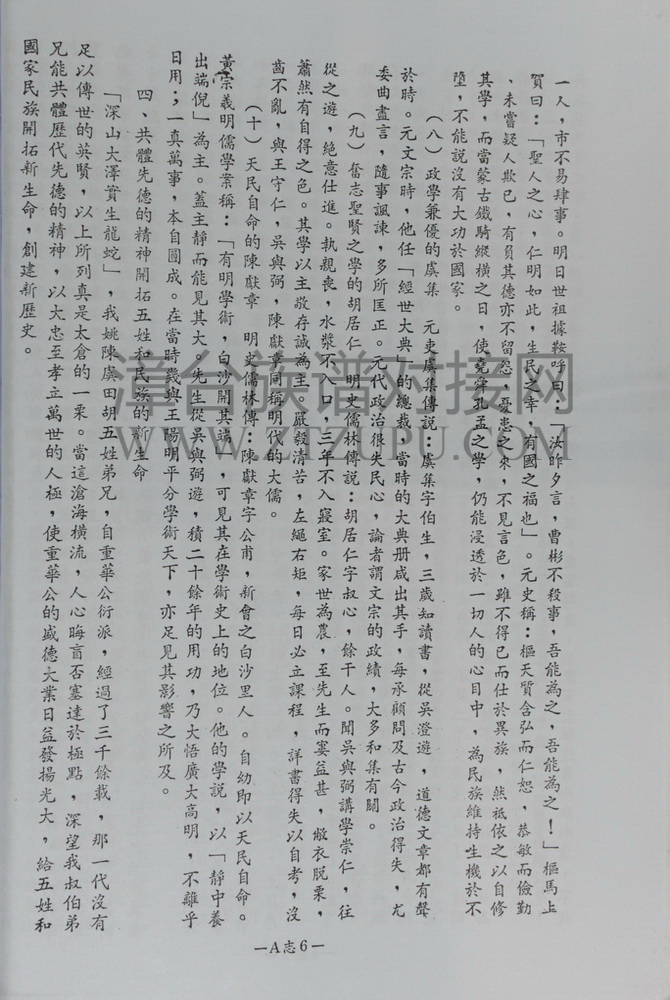 一人，市不易肆事。明日世祖據鞍呼曰：「汝昨夕言，曹彬不殺事，吾能為之，吾能為之！」樞馬上
賀曰：「聖人之心，仁明如此，生民之幸，有國之福也」。元史稱：樞天質含弘而仁恕，恭敏而儉勤
，未嘗疑人欺己，有負其德亦不留怨，憂患之來，不見言色，雖不得已而仕於異族，然祗依之以自修
其學，而當蒙古鐵騎縱橫之日，使堯舜孔孟之學，仍能浸透於一切人的心目中，為民族維持生機於不
墮，不能說沒有大功於國家。
（八）政學兼優的虞集　元史虞集傳說：虞集字伯生，三歲知讀書，從吳澄遊，道德文章都有聲
於時。元文宗時，他任「經世大典」的總裁，當時的大典册咸出其手，每承顧問及古今政治得失，尤
委曲盡言，隨事諷諫，多所匡正。元代政治很失民心，論者謂文宗的政績，大多和集有關。
（九）奮志聖賢之學的胡居仁　明史儒林傳說：胡居仁字叔心，餘干人。聞吳與弼講學崇仁，往
從之遊，絶意仕進。執親喪，水漿不入口，三年不入寢室。家世為農，至先生而窶益甚，敝衣脫粟，
蕭然有自得之色。其學以主敬存誠為主。嚴發清苦，左繩右矩，每日必立課程，詳書得失以自考，沒
齒不亂，與王守仁，吳與弼，陳獻章同稱明代的大儒。
（十）天民自命的陳獻章　明史儒林傳：陳獻章字公甫，新會之白沙里人。自幼即以天民自命。
黃宗羲明儒學案稱：「有明學術，白沙開其端，可見其在學術史上的地位。他的學說，以「靜中養
出端倪」為主。蓋主靜而能見其大，先生從吳與弼遊，積二十餘年的用功，乃大悟廣大高明，不離乎
日用；一真萬事，本自圓成。在當時幾與王陽明平分學術天下，亦足見其影響之所及。
四、共體先德的精神開拓五姓和民族的新生命
「深山大澤實生龍蛇」，我姚陳虞田胡五姓弟兄，自重華公衍派，經過了三千餘載，那一代沒有
足以傳世的英賢，以上所列真是太倉的一粟。當這滄海橫流，人心晦盲否塞達於極點，深望我叔伯弟
兄能共體歷代先德的精神，以大忠至孝立萬世的人極，使重華公的盛德大業日益發揚光大，給五姓和
國家民族開拓新生命，創建新歷史。
—A志6—
清台族谱对接网
WWW.QTZJPU.COM